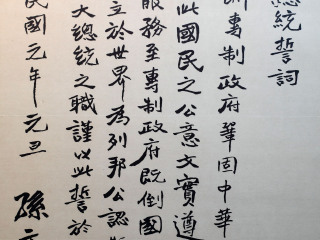 總統誓詞
洲專制政府鞏固中華
此國民之公意文實遵
服務至專制政府既倒國
立於世界為列邦公認
大總統之職謹以此誓於
民國元年元旦 孫文